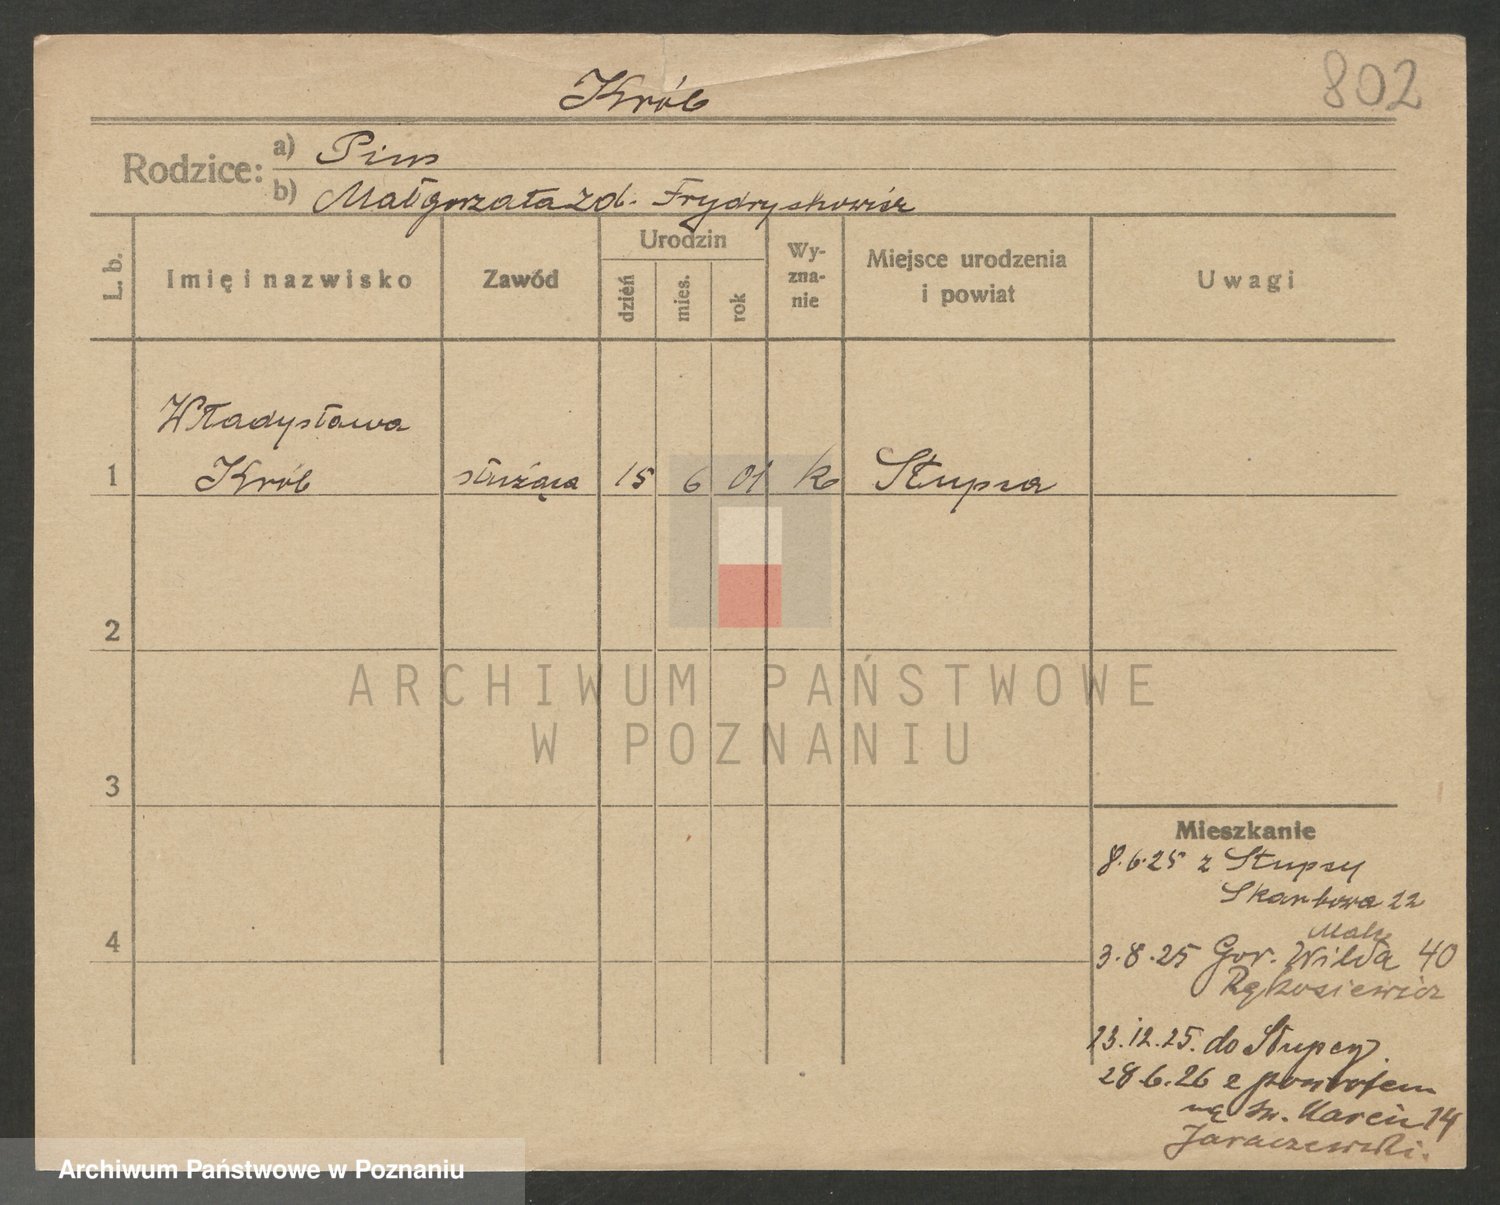 Król
802
Rodzice: a) Pius
b) Małgorzata zd. Frydrychowicz
L. b.
Imię i nazwisko
Zawód
Urodzin
dzień
mies.
rok
Wy-
zna-
nie
Miejsce urodzenia
i powiat
Uwagi
Władysława
1 Król służąca 15 6 01 k Słupca
2
3
4
Mieszkanie
8.6.25 z Słupcy
Skarbowa 22
Małe
3.8.25 Gór. Wilda 40
23.12.25. do Słupcy.
28.6.26 z powrotem
na św. Marcin 14
Jaraczewski.
ARCHIWUM PAŃSTWOWE
W POZNANIU
Archiwum Państwowe w Poznaniu